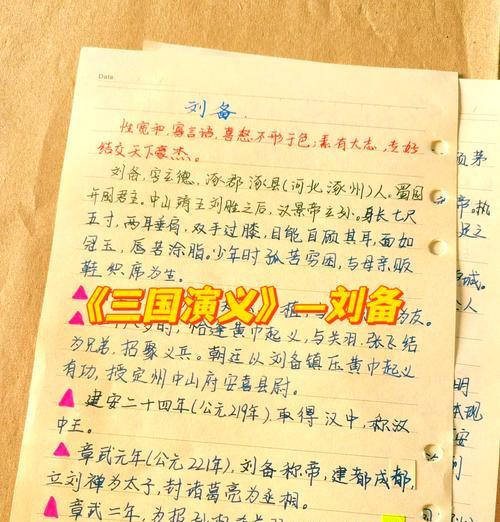 Date.
刘备.
性宽和,寡言语,喜怒不形于色;素有大志,专好
结交天下豪杰。
刘备,字玄德,涿郡涿县(河北,涿州)人。蜀国
开国君主。中山靖王刘胜之后,汉景帝玄孙。身长七尺
五寸,两耳垂肩,双手过膝,目能自顾其耳,面如
冠玉,唇若涂脂。少年时孤苦穷困,与母亲贩
鞋织席为生。
《三国演义》—刘备
植,
为友。
岁时,恰逢黄巾起义,与关羽.张飞结
为兄弟,招聚义兵。朝廷以刘备镇压黄巾起义
有功,授定州中山府安喜县尉。
建安二十四年(公元219年)取得汉中,称汉
中王。
章武元年(公元221年),刘备称帝,建都成都,
立刘禅为太子,封诸葛亮为丞相。
章武二年,为报
页茅
帝。执
足立
城。
公人
明
本现
安